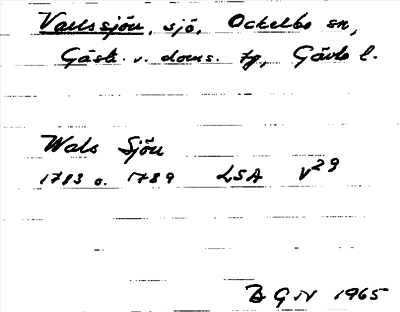 Vallssjön, sjö, Ockelbo sn,
Gästr. v. doms. tg, Gävle l.
Wals Sjön
1783 o. 1789 LSA V29
B G N 1965